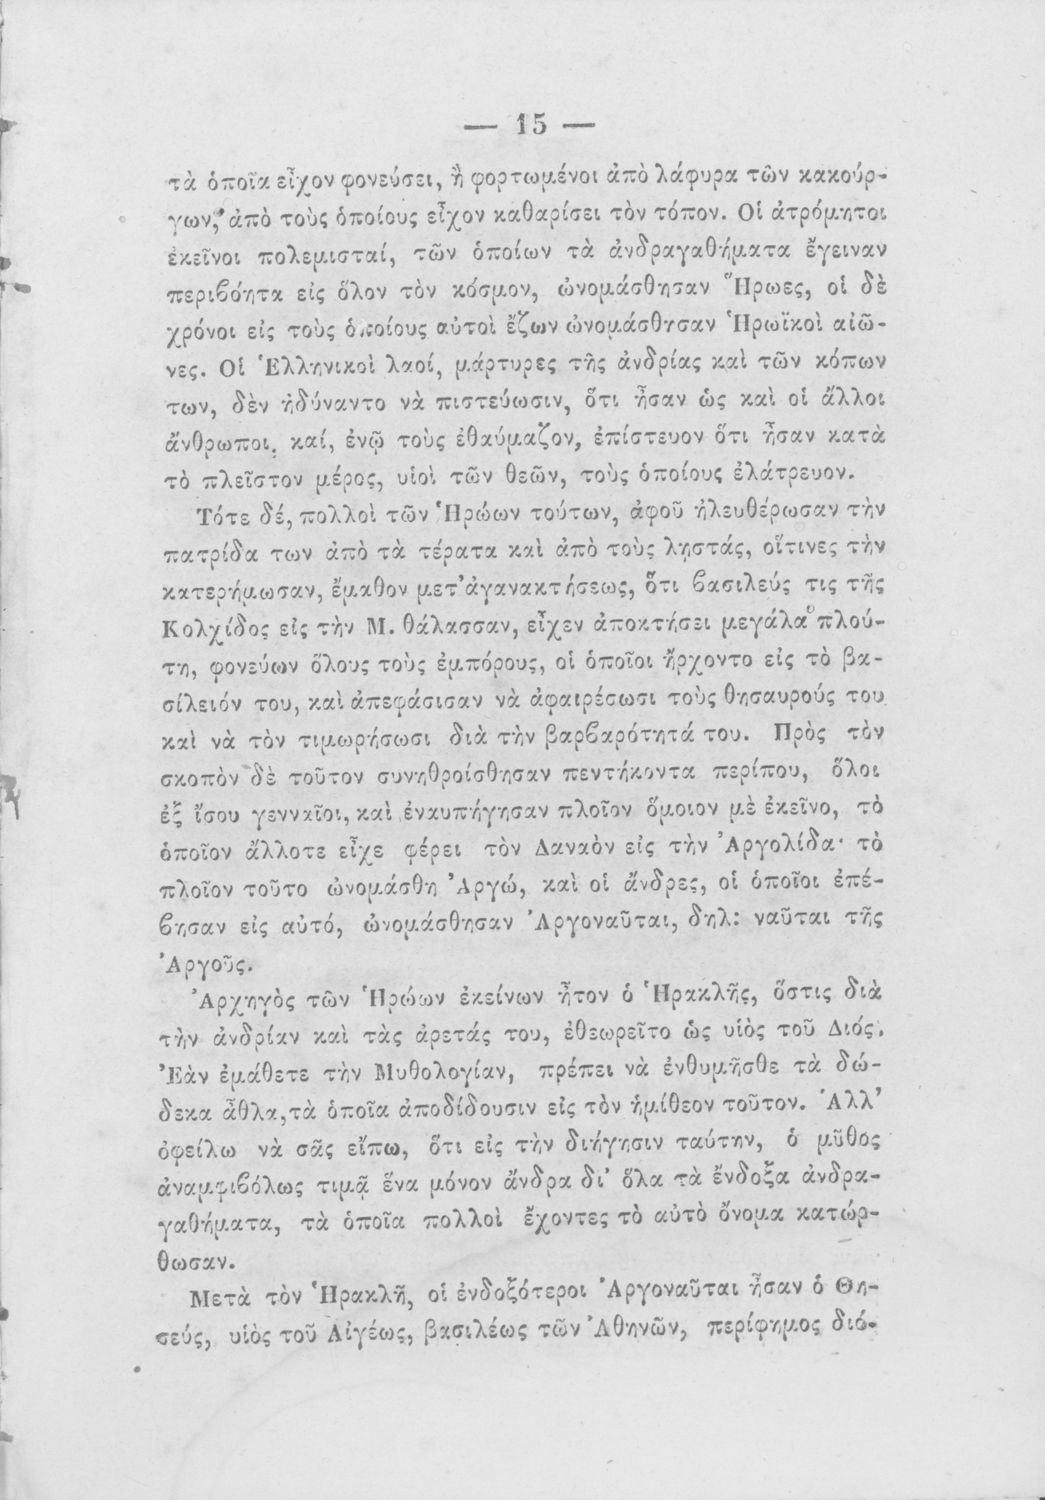 — 15 —
τὰ ὁποῖα εἶχον φονεύσει, ἢ φορτωμένοι ἀπὸ λάφυρα τῶν κακούρ-
γων, ἀπὸ τοὺς ὁποίους εἶχον καθαρίσει τὸν τόπον. Οἱ ἀτρόμητοι
ἐκεῖνοι πολεμισταί, τῶν ὁποίων τὰ ἀνδραγαθήματα ἔγειναν
περιβόητα εἰς ὅλον τὸν κόσμον, ὠνομάσθησαν Ἥρωες, οἱ δὲ
χρόνοι εἰς τοὺς ὁποίους αὐτοὶ ἔζων ὠνομάσθησαν Ἡρωϊκοὶ αἰῶ-
νες. Οἱ Ἑλληνικοὶ λαοί, μάρτυρες τῆς ἀνδρίας καὶ τῶν κόπων
των, δὲν ἠδύναντο νὰ πιστεύωσιν, ὅτι ἦσαν ὡς καὶ οἱ ἄλλοι
ἄνθρωποι, καί, ἐνῷ τοὺς ἐθαύμαζον, ἐπίστευον ὅτι ἦσαν κατὰ
τὸ πλεῖστον μέρος, υἱοὶ τῶν θεῶν, τοὺς ὁποίους ἐλάτρευον.
Τότε δέ, πολλοὶ τῶν Ἡρώων τούτων, ἀφοῦ ἠλευθέρωσαν τὴν
πατρίδα των ἀπὸ τὰ τέρατα καὶ ἀπὸ τοὺς ληστάς, οἵτινες τὴν
κατερήμωσαν, ἔμαθον μετ' ἀγανακτήσεως, ὅτι βασιλεύς τις τῆς
Κολχίδος εἰς τὴν Μ. θάλασσαν, εἶχεν ἀποκτήσει μεγάλα πλού-
τη, φονεύων ὅλους τοὺς ἐμπόρους, οἱ ὁποῖοι ἤρχοντο εἰς τὸ βα-
σίλειόν του, καὶ ἀπεφάσισαν νὰ ἀφαιρέσωσι τοὺς θησαυρούς του
καὶ νὰ τὸν τιμωρήσωσι διὰ τὴν βαρβαρότητά του. Πρὸς τὸν
σκοπὸν δὲ τοῦτον συνηθροίσθησαν πεντήκοντα περίπου, ὅλοι
ἐξ ἴσου γενναῖοι, καὶ ἐναυπήγησαν πλοῖον ὅμοιον μὲ ἐκεῖνο, τὸ
ὁποῖον ἄλλοτε εἶχε φέρει τὸν Δαναὸν εἰς τὴν Ἀργολίδα· τὸ
πλοῖον τοῦτο ὠνομάσθη Ἀργώ, καὶ οἱ ἄνδρες, οἱ ὁποῖοι ἐπέ-
βησαν εἰς αὐτό, ὠνομάσθησαν Ἀργοναῦται, δηλ: ναῦται τῆς
Ἀργοῦς.
Ἀρχηγὸς τῶν Ἡρώων ἐκείνων ἦτον ὁ Ἡρακλῆς, ὅστις διὰ
τὴν ἀνδρίαν καὶ τὰς ἀρετάς του, ἐθεωρεῖτο ὡς υἱὸς τοῦ Διός.
Ἐὰν ἐμάθετε τὴν Μυθολογίαν, πρέπει νὰ ἐνθυμῆσθε τὰ δώ-
δεκα ἆθλα, τὰ ὁποῖα ἀποδίδουσιν εἰς τὸν ἡμίθεον τοῦτον. Ἀλλ'
ὀφείλω νὰ σᾶς εἴπω, ὅτι εἰς τὴν διήγησιν ταύτην, ὁ μῦθος
ἀναμφιβόλως τιμᾷ ἕνα μόνον ἄνδρα δι' ὅλα τὰ ἔνδοξα ἀνδρα-
γαθήματα, τὰ ὁποῖα πολλοὶ ἔχοντες τὸ αὐτὸ ὄνομα κατώρ-
θωσαν.
Μετὰ τὸν Ἡρακλῆ, οἱ ἐνδοξότεροι Ἀργοναῦται ἦσαν ὁ Θη-
σεύς, υἱὸς τοῦ Αἰγέως, βασιλέως τῶν Ἀθηνῶν, περίφημος διό-